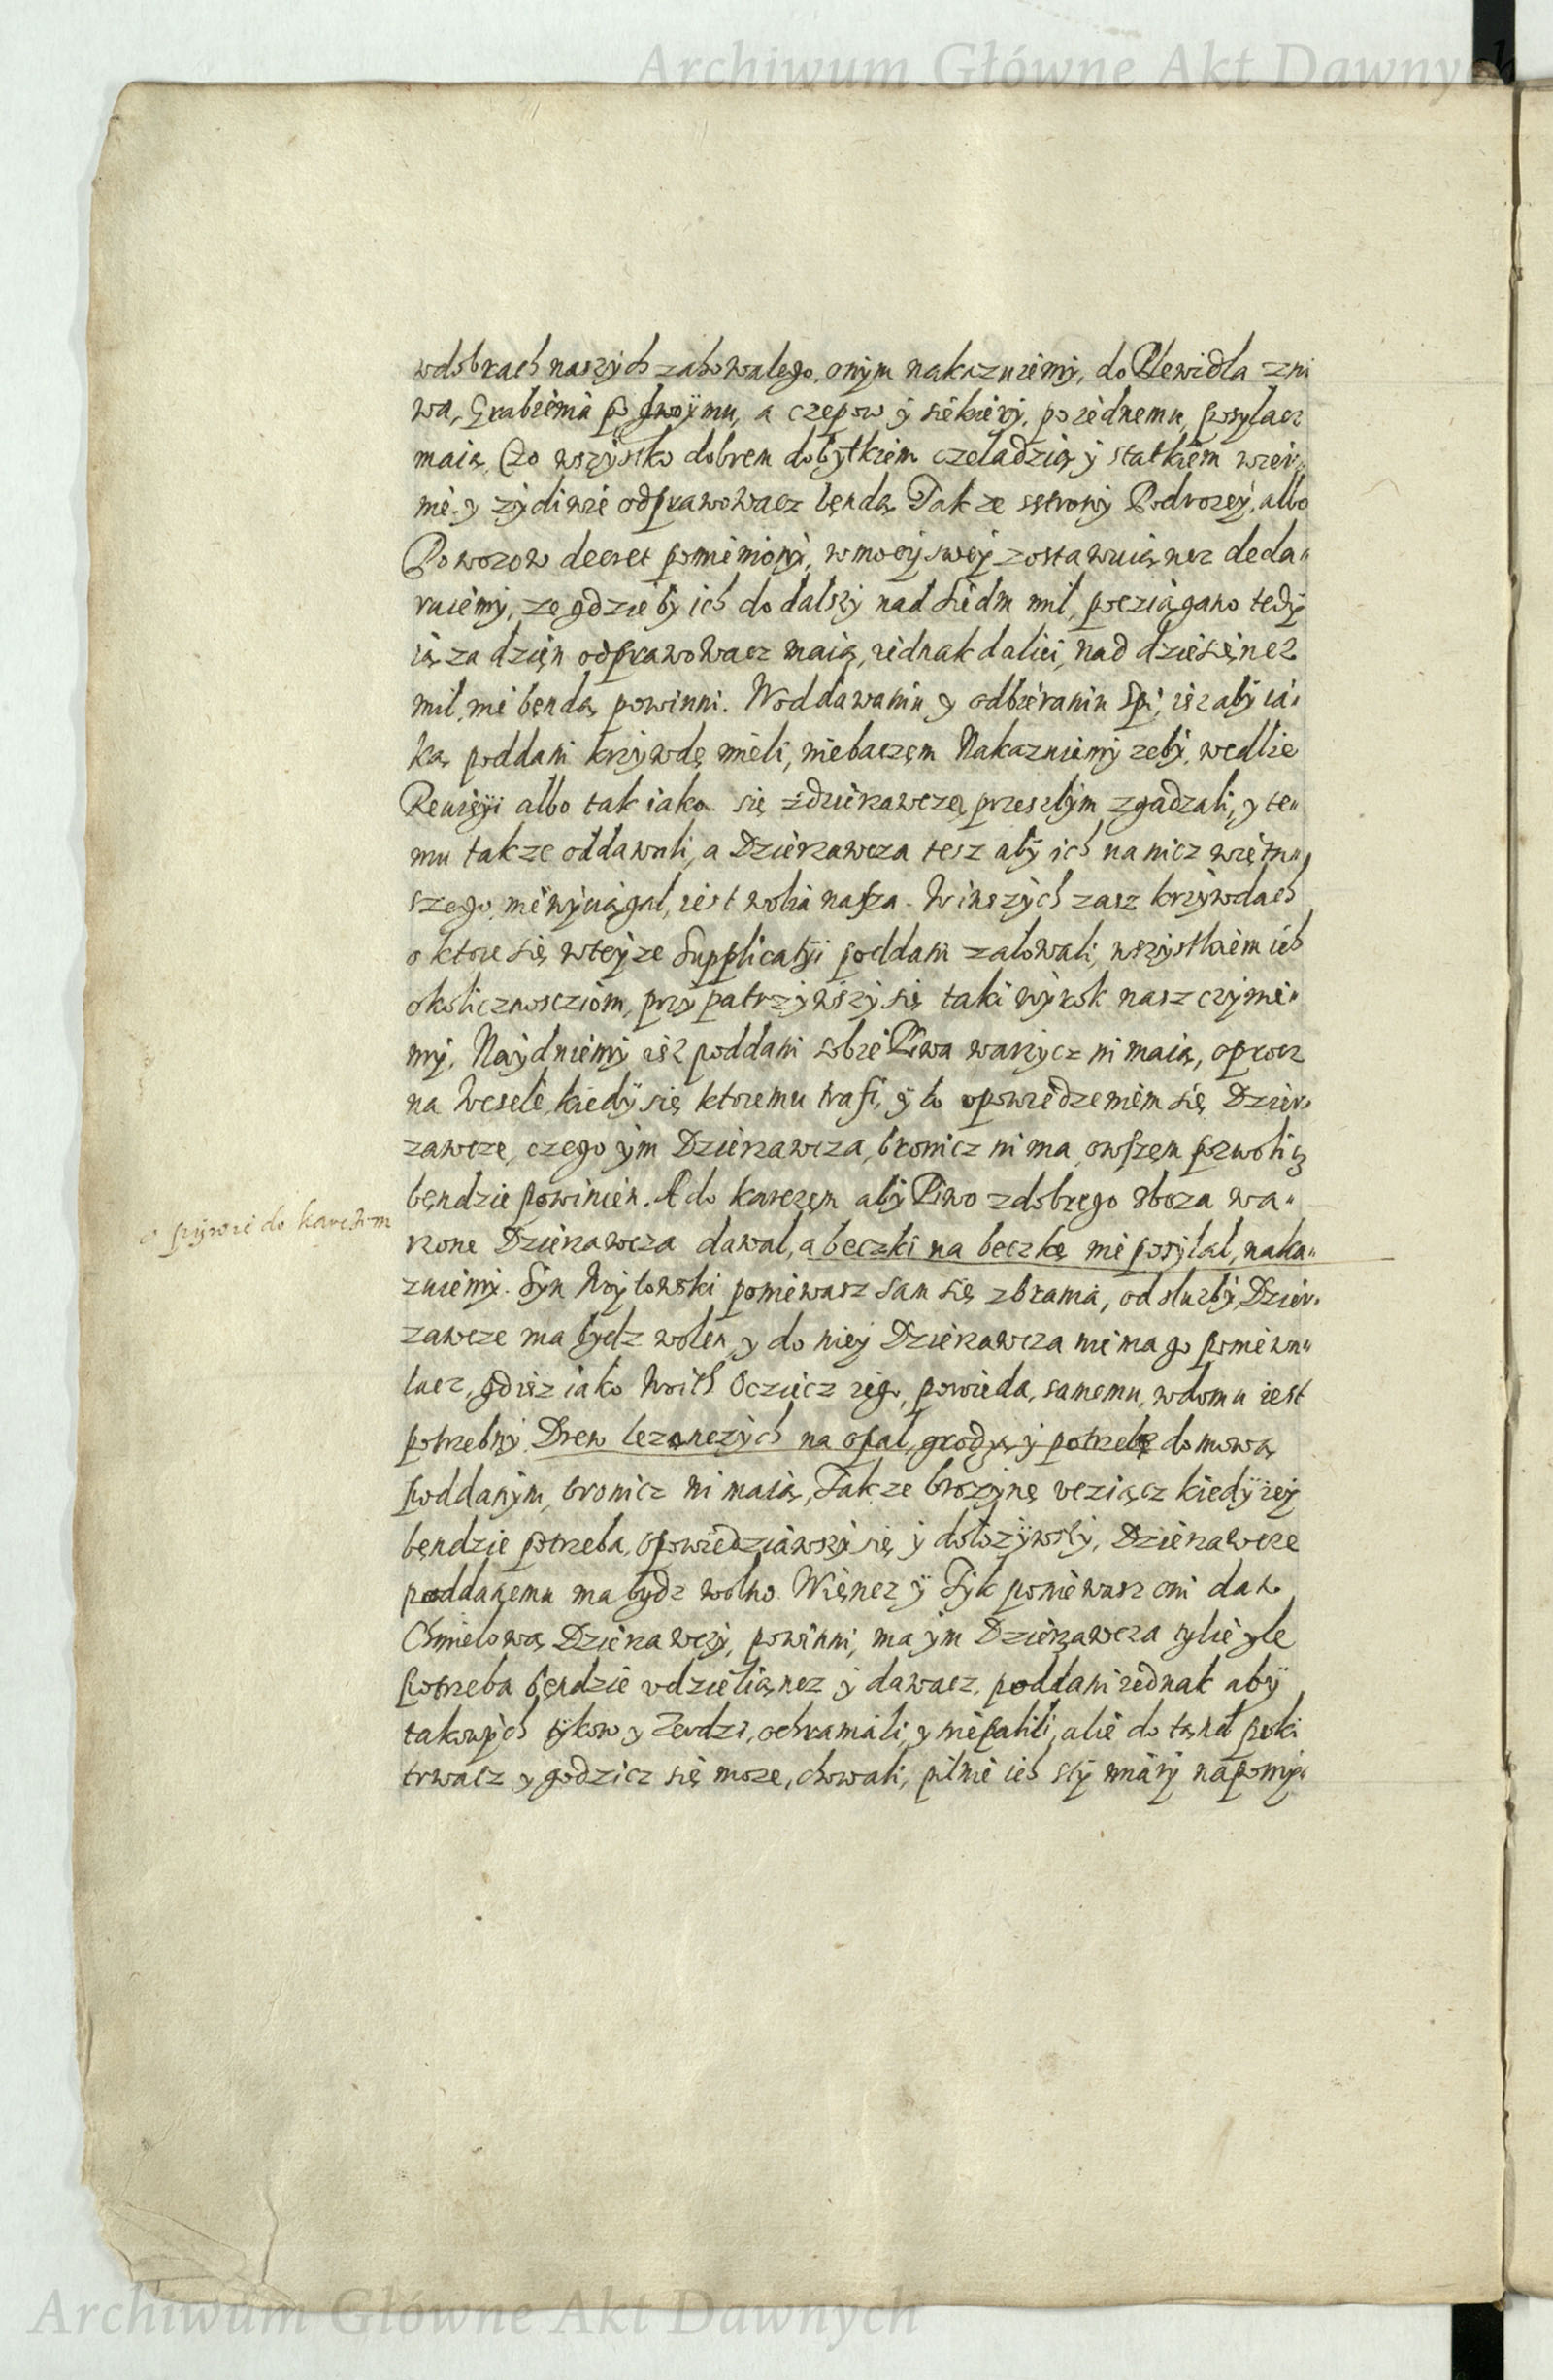 Archiwum Główne Akt Dawnych
wdobrach naszych zahowalego, onym nakazuiemy, do Plewidla zni
wa, Grabienia po dwoÿmu, a czepow ÿ siekiery, po iednemu, posylacz
maią, Czo wszystko dobrem dobytkiem czeladzią ÿ statkiem wier„
nie y zÿcliwie odprawowacz bęndą. Takze sstrony Podrozeÿ, albo
Powozow decret pomieniony, wmocÿ sweÿ zostawuiąncz decla„
ruiemy, ze gdzieby ich do dalszy nad siedm mil, poeziągano tedy
ią za dzięn odprawowacz maią, iednak daliei, nad dziesięncz
mil, nie bęndą powinni. Woddawaniu y odbieraniu Spi, isz aby ia„
ką poddani krzywdę mieli, niebaczęm Nakazuiemy zeby, wedlie
Reuizÿi albo tak iako się zdzierzawczą przeszlym zgadzali, y te„
mu takze oddawali, a Dzierzawcza tesz aby ich na nicz więtn„
szego, niewyciągal, iest wolia nasza. Winszych zasz krzywdach
o ktore się wteyze Supplicatÿi poddani zalowali, wszystkiem ich
okolicznoscziom, przypatrzywszy się taki wyrok nasz czynie„
my. Naydniemy isz poddani sobie Piwa warzycz ni maią, oprocz
na Wesele, kiedÿ się ktoremu trafi, ÿ to opowiedzeniem się Dzier„
zawcze, czego ÿm Dzierzawcza, bronicz ni ma, owszęn pozwolicz
bęndzie powinien. A do karczęm aby Piwo zdobrego zboza wa„
o piywie do karczom
rzone Dzierzawcza dawal, a beczki na beczkę nie posÿlal, naka„
zuiemy. Syn Woytowski poniewasz sam się zbrania, od sluzby, Dzier„
zawcze ma bydz wolen, y do niey Dzierzawcza nie ma go poniewu„
lacz, gdisz iako Woith Oczciecz iego, powieda, samemu, wdomu iest
potrzebny. Drew lezączych na opal, grodzą ÿ potrzebę domową
poddanym, bronicz ni maią, Takze brozynę veziącz kiedÿ iey
bęndzie potrzeba, opowiedziawszy się ÿ dolozÿwszy, Dzierzawcze
poddanemu ma bydz wolno. Więncz ÿ Tyk poniewasz oni dań
Chmielową Dzierzawczy, powinni, ma ÿm Dzierzawcza tylie yle
potrzeba bęndzie vdzieliąncz ÿ dawacz, poddani iednak abÿ
takowych tÿkow y Zerdzi, ochraniali, y niepalili, alie do tąnd poki
trwacz y godzicz się moze, chowali, pilnie ich stÿ miary napomy„
Archiwum Główne Akt Dawnych